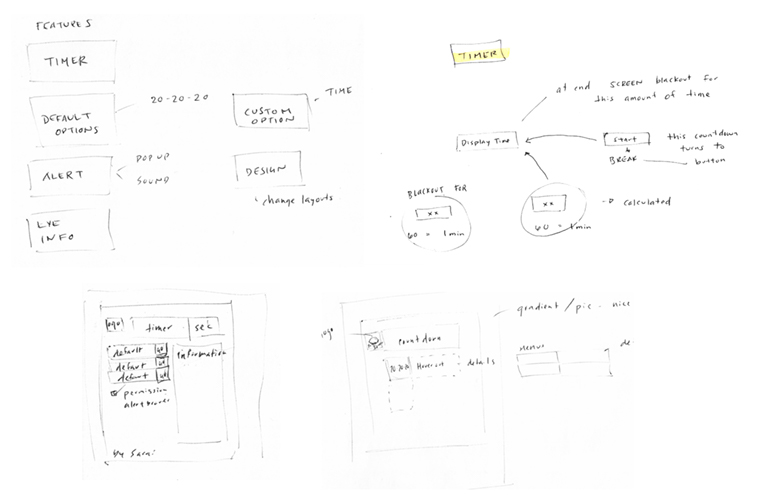 FEATURES
TIMER
DEFAULT
OPTIONS
20-20-20
CUSTOM
OPTION
TIME
ALERT
POP UP
SOUND
DESIGN
change layouts
EYE
INFO
TIMER
at end SCREEN blackout for
this amount of time
Display Time
Start
BREAK
this countdown
turns to
button
BLACKOUT FOR
xx
60 = 1 min
xx
60 = 1 min
calculated
logo
timer
sec
default
default
default
information
permission
logo
countdown
20 20 20
Hover out
details
gradient / pic - nice
menus
de